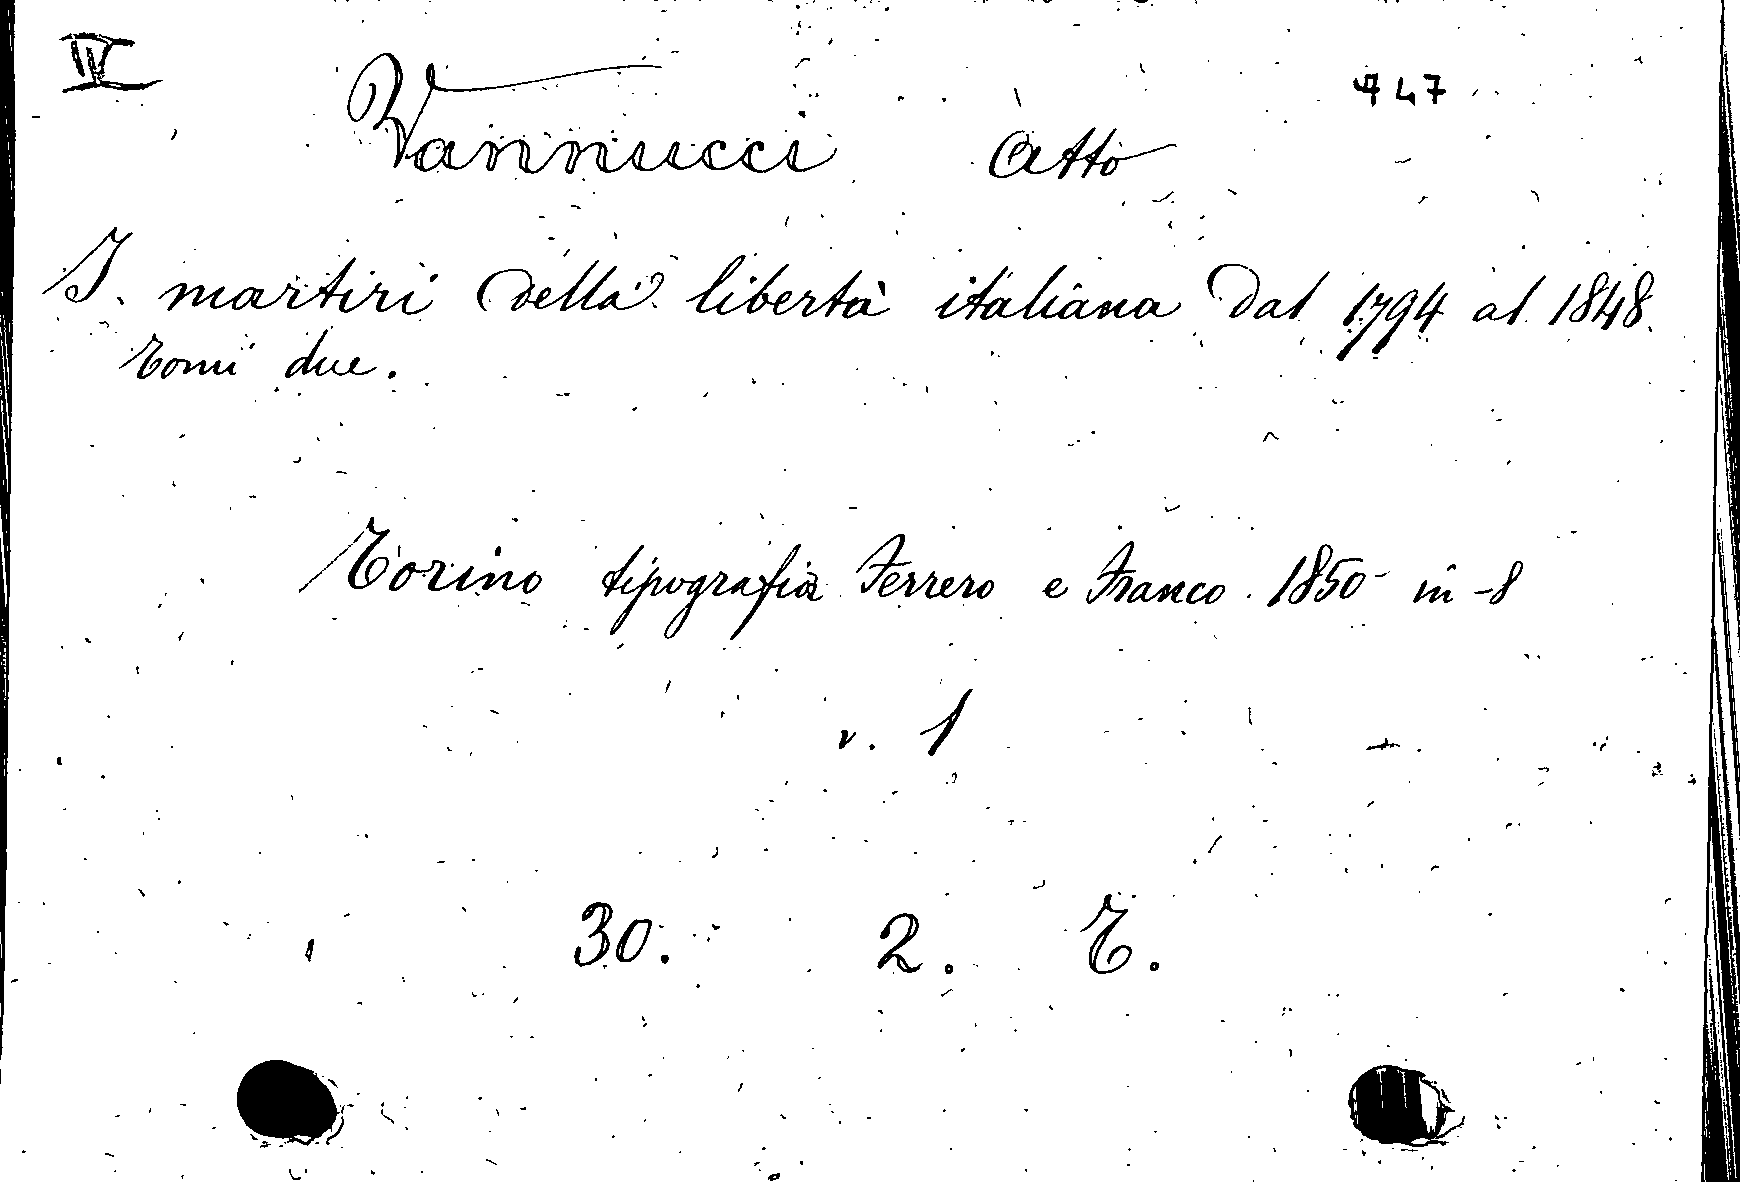 IV
747
Vannucci Atto
I. martiri della libertà italiana dal 1794 al 1848.
Tomi due.
Torino tipografia Ferrero e Franco. 1850 - in -8
v. 1
30. 2. T.